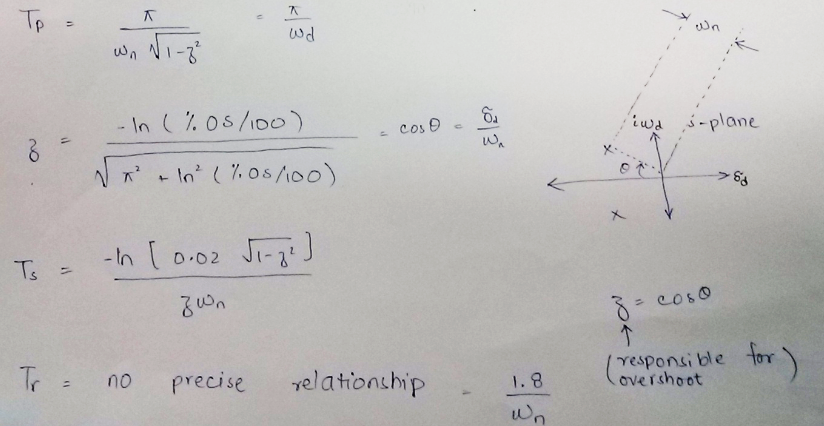 Tp = π / (ωn √(1-ζ²)) = π / ωd
ζ = -ln (%OS/100) / √(π² + ln² (%OS/100)) = cosθ = δd / ωn
Ts = -ln [ 0.02 √(1-ζ²) ] / ζωn
Tr = no precise relationship = 1.8 / ωn
ωn
iωd s-plane
θ
δd
ζ = cosθ
(responsible for)
overshoot